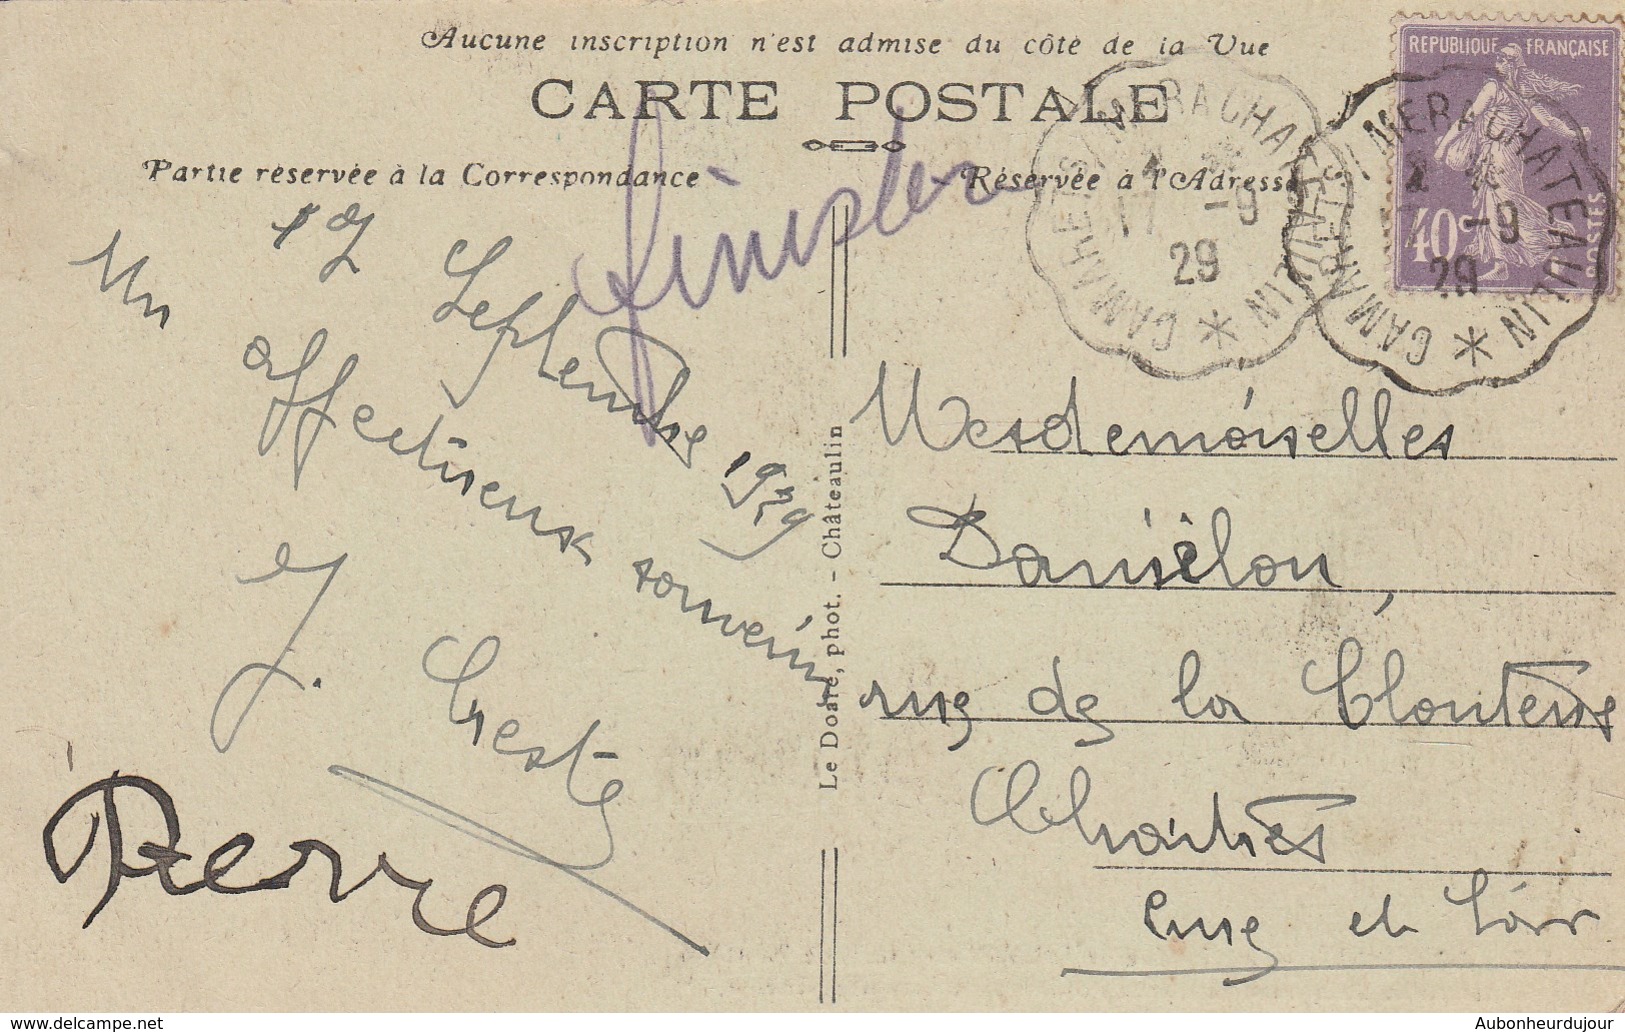 Aucune inscription n'est admise du côté de la Vue
CARTE POSTALE
Partie réservée à la Correspondance
Réservée à l'Adresse
REPUBLIQUE FRANÇAISE
40c
POSTES
CAMARETS/MER A CHATEAULIN
17 -9
29
CAMARETS/MER A CHATEAULIN
-9
29
Finister
17 Septembre 1929
Un affectueux souvenir
J. Creste
Pierre
Le Doaré, phot. - Châteaulin
Mesdemoiselles
Daniélou,
rue de la Clouterie
Chartres
Eure et Loir
Aubonheurdujour
www.delcampe.net